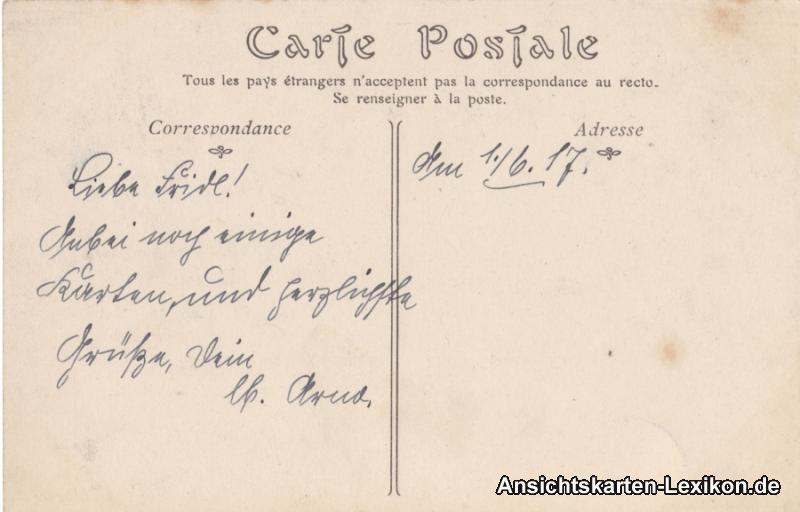 Carte Postale
Tous les pays étrangers n'acceptent pas la correspondance au recto.
Se renseigner à la poste.
Correspondance
Adresse
Liebe Fridl!
Anbei noch einige
Karten, und herzlichste
Grüße, Dein
lb. Arno.
Am 1./6. 17.
Ansichtskarten-Lexikon.de